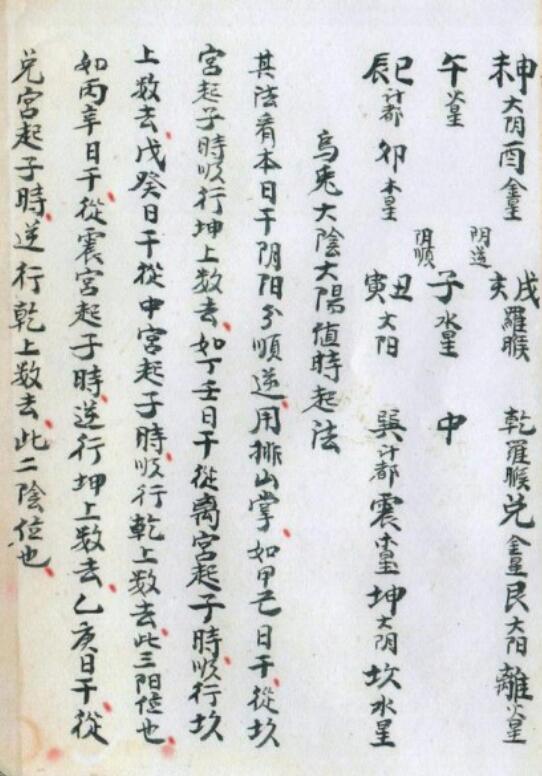 未申太阴酉金星戌亥羅睺乾羅睺兑金星艮太阳離火星
午火星阴逆阴順子水星中
辰巳計都卯木星寅丑太阳巽計都震木星坤太阴坎水星
烏兎太陰太陽值時起法
其法看本日干阴阳分順逆用排山掌如甲己日干從坎
宮起子時順行坤上数去如丁壬日干從离宮起子時順行坎
上数去戊癸日干從中宮起子時順行乾上数去此三阳位也
如丙辛日干從震宮起子時逆行坤上数去乙庚日干從
兑宮起子時逆行乾上数去此二陰位也